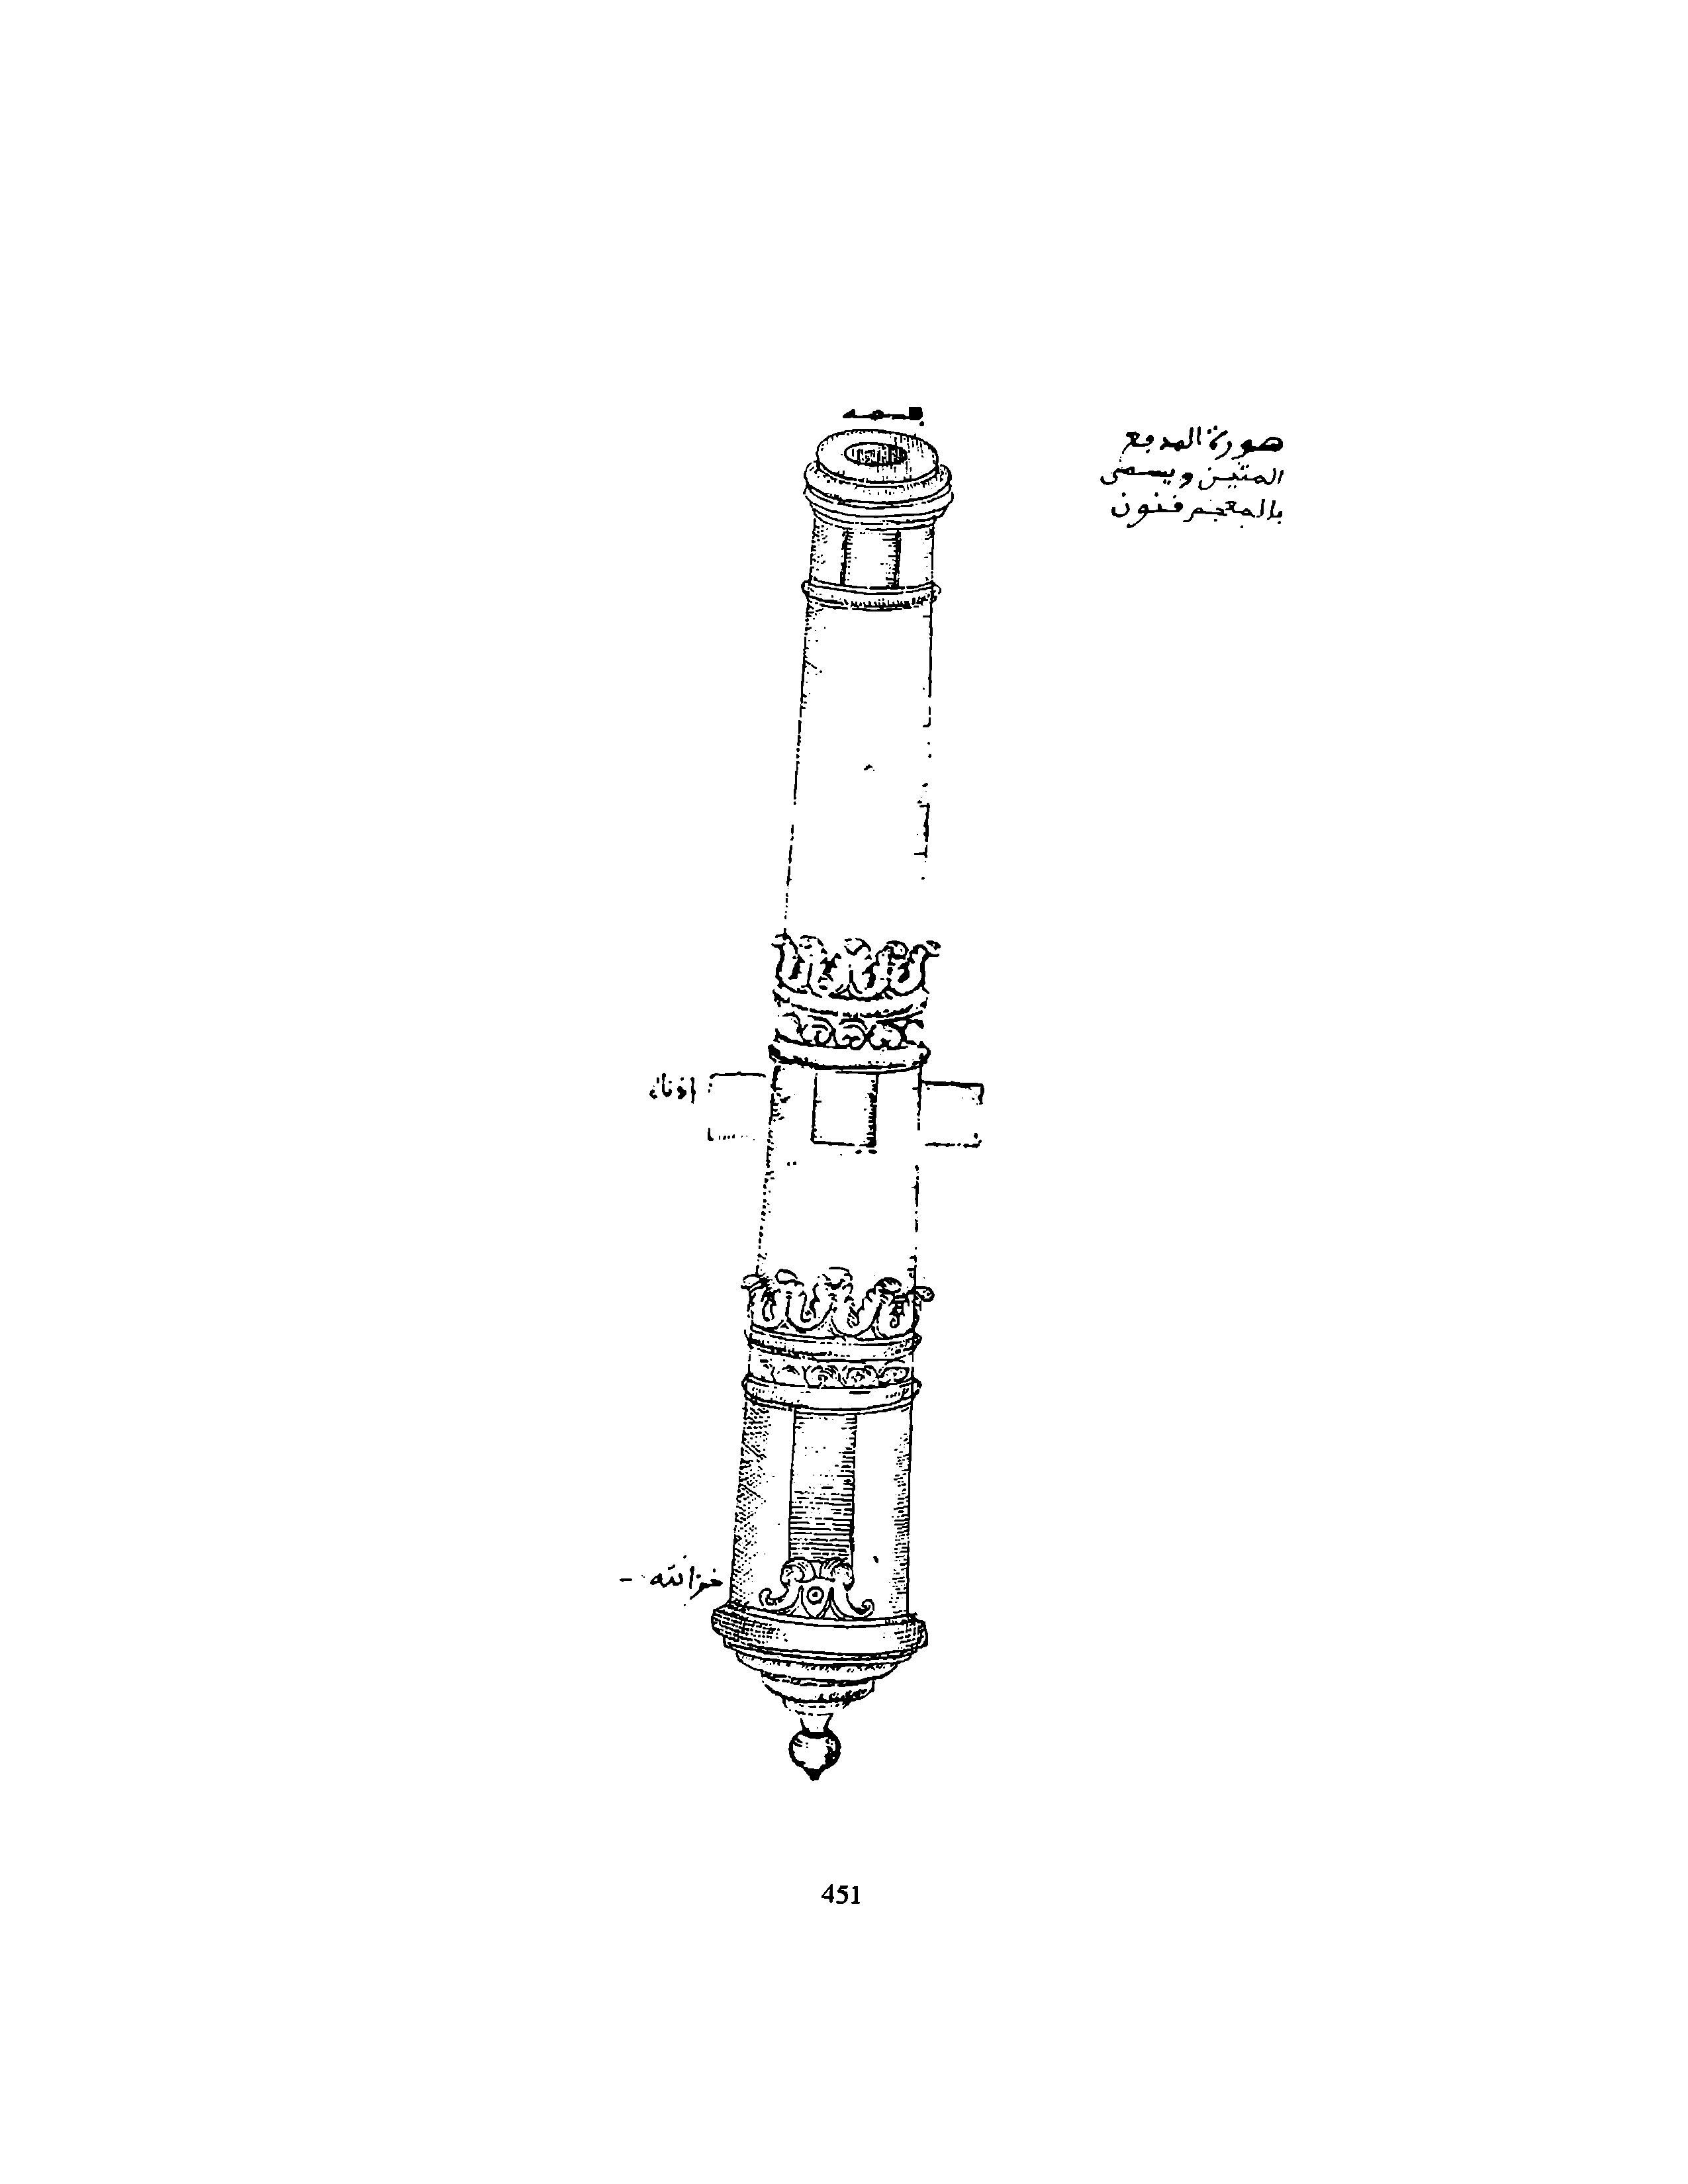 فمه
صورة المدفع
المتين ويسمى
بالمعجم فنون
اذناه
خزانته -
451